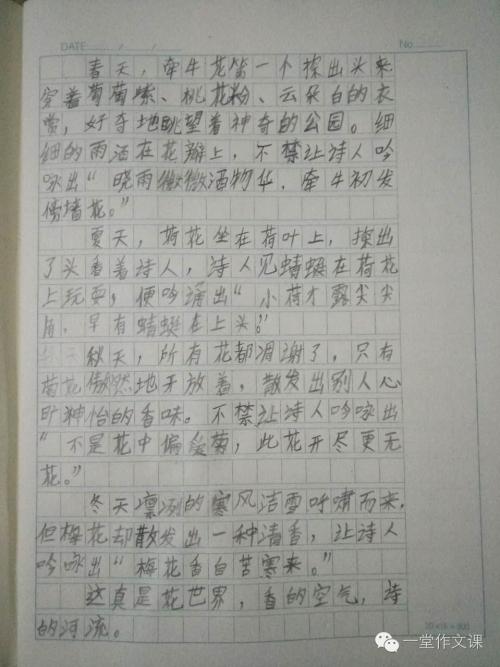 DATE / / No
春天，牵牛花第一个探出头来
穿着葡萄紫、桃花粉、云朵白的衣
赏，好奇地眺望着神奇的公园。细
细的雨洒在花瓣上，不禁让诗人吟
咏出“晓雨微微洒物华，牵牛初发
傍墙花。”
夏天，荷花坐在荷叶上，探出
了头看着诗人，诗人见蜻蜓在荷花
上玩耍，便吟诵出“小荷才露尖尖
角，早有蜻蜓在上头。”
秋天，所有花都凋谢了，只有
菊花傲然地开放着，散发出别人心
旷神怡的香味。不禁让诗人吟咏出
“不是花中偏爱菊，此花开尽更无
花。”
冬天凛冽的寒风洁雪呼啸而来，
但梅花却散发出一种清香，让诗人
吟咏出“梅花香自苦寒来。”
这真是花世界，香的空气，诗
的河流。
一堂作文课